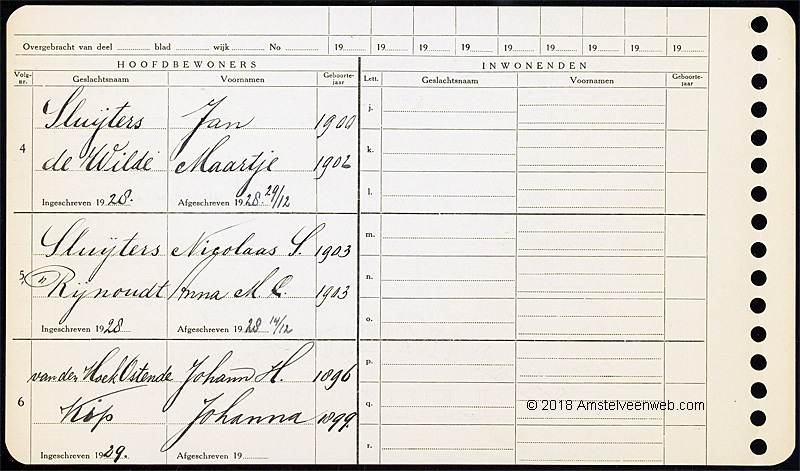 Overgebracht van deel ............ blad ............ wijk ............ No ............ 19...... 19...... 19...... 19...... 19...... 19...... 19...... 19......
HOOFDBEWONERS INWONENDEN
Volg-nr. Geslachtsnaam Voornamen Geboorte-jaar Lett. Geslachtsnaam Voornamen Geboorte-jaar
Sluijters Jan 1900 j.
4
de Wilde Maartje 1902 k.
Ingeschreven 1928. Afgeschreven 1928. 29/12 l.
Sluijters Nicolaas S. 1903 m.
5, " Rijnoudt Anna M. C. 1903 n.
Ingeschreven 1928 Afgeschreven 1928 14/12 o.
van den Hoek Ostende Johann H. 1896 p.
6 Kop Johanna 1899. q.
© 2018 Amstelveenweb.com
Ingeschreven 1929. Afgeschreven 19...... r.